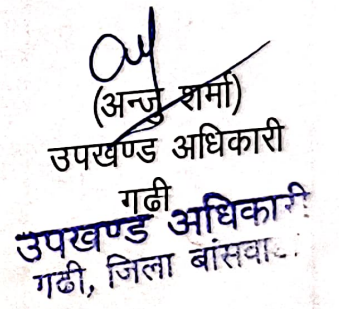 (अन्जु शर्मा)
उपखण्ड अधिकारी
गढी
उपखण्ड अधिकारी
गढी, जिला